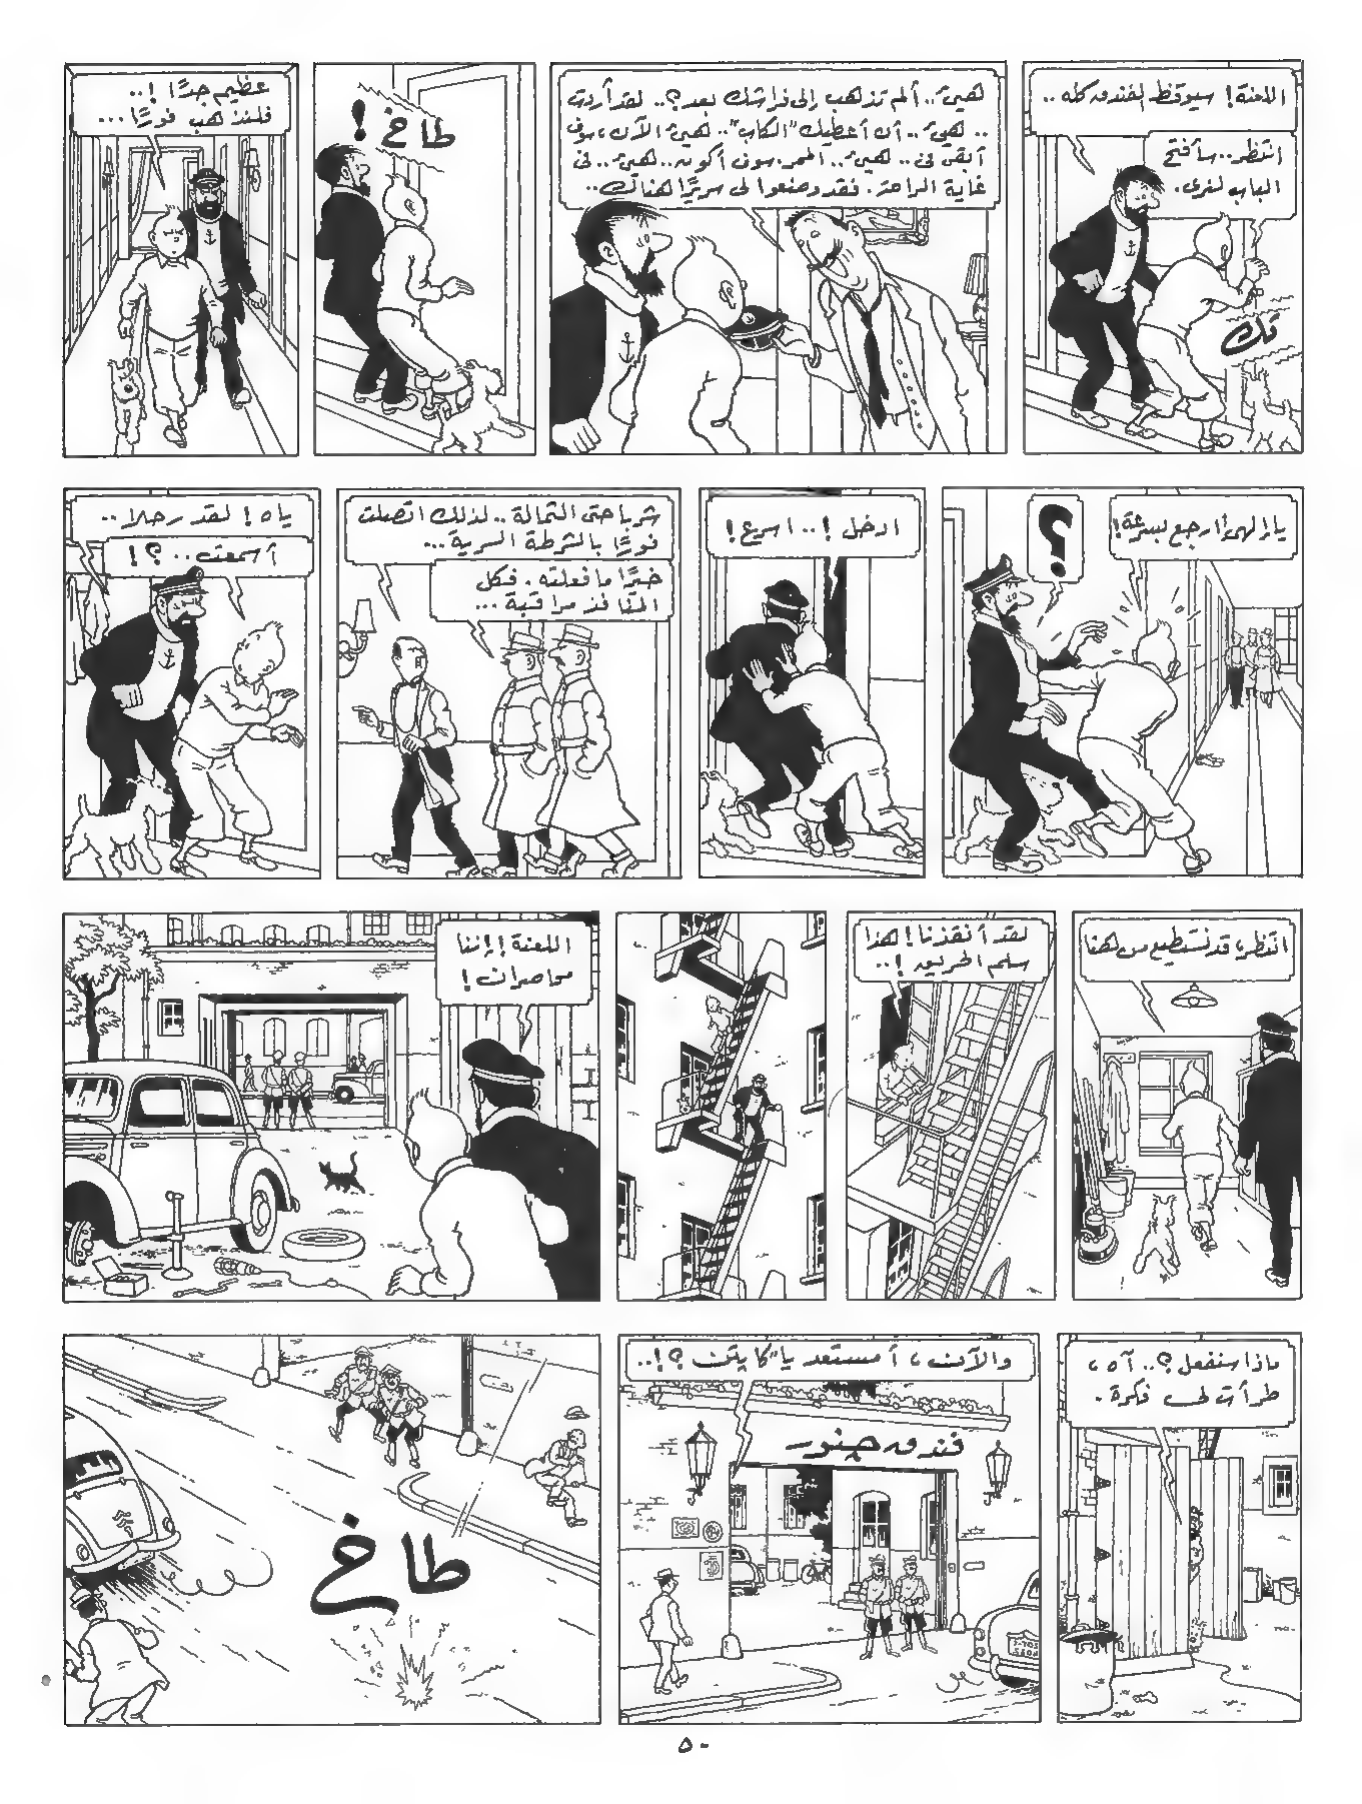 اللعنة! سيوقظ الفندق كله..
انتظر.. سأفتح
الباب لنرى.
تك
هىء.. ألم تذهب إلى فراشك بعد؟.. لقد أردت
.. هىء.. أن أعطيك "الكاب".. هىء الآن، سوف
أبقى فى.. هىء.. الممر. سوف أكون.. هىء.. فى
غاية الراحة. فقد وضعوا لى سريرًا هناك..
طاخ!
عظيم جدًا!..
فلنذهب فورًا...
يا إلهى! ارجع بسرعة!
؟
ادخل!.. اسرع!
شربا حتى الثمالة.. لذلك اتصلت
فورًا بالشرطة السرية...
خيرًا ما فعلته. فكل
المنافذ مراقبة...
ياه! لقد رحلا..
أسمعت..؟!
انتظر، قد نستطيع من هنا
لقد أنقذنا! هذا
سلم الحريق!..
اللعنة! إننا
محاصران!
ماذا سنفعل؟.. آه،
طرأت لى فكرة.
والآن، أمستعد يا "كابتن"؟!..
فندق
طاخ
٥٠